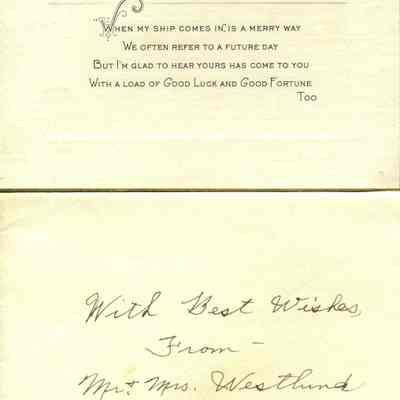 "When my ship comes in", is a merry way
We often refer to a future day
But I'm glad to hear yours has come to you
With a load of Good Luck and Good Fortune
Too
With Best Wishes,
From -
Mr. & Mrs. Westlund